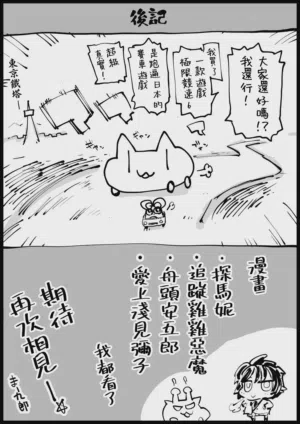 後記
大家還好嗎!?
我還行!
我買了
一款遊戲
極限競速6
是跑遍日本的
賽車遊戲
超級
真實!
東京鐵塔
漫畫
・探馬妮
・追蹤雞雞惡魔
・舟頭安五郎
・愛上淺見彌子
我都看了
期待
再次相見ー
まん九郎